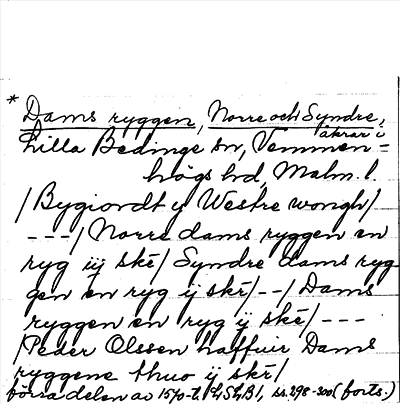 * Dams ryggen, Norre och Syndre,
åkrar i
Lilla Bedinge sn, Vemmen=
högs hd, Malm. l.
/Bygiordt y Westre wongh/
---/Norre dams ryggen en
ryg iij ske/ Syndre dams ryg
gen en ryg ij ske/--/Dams
ryggen en ryg ij ske/ ---
/Peder Olssen haffuir Dams
ryggene thuo ij ske/
förra delen av 1570-t. LSLB1, ss. 298-300 (forts.)